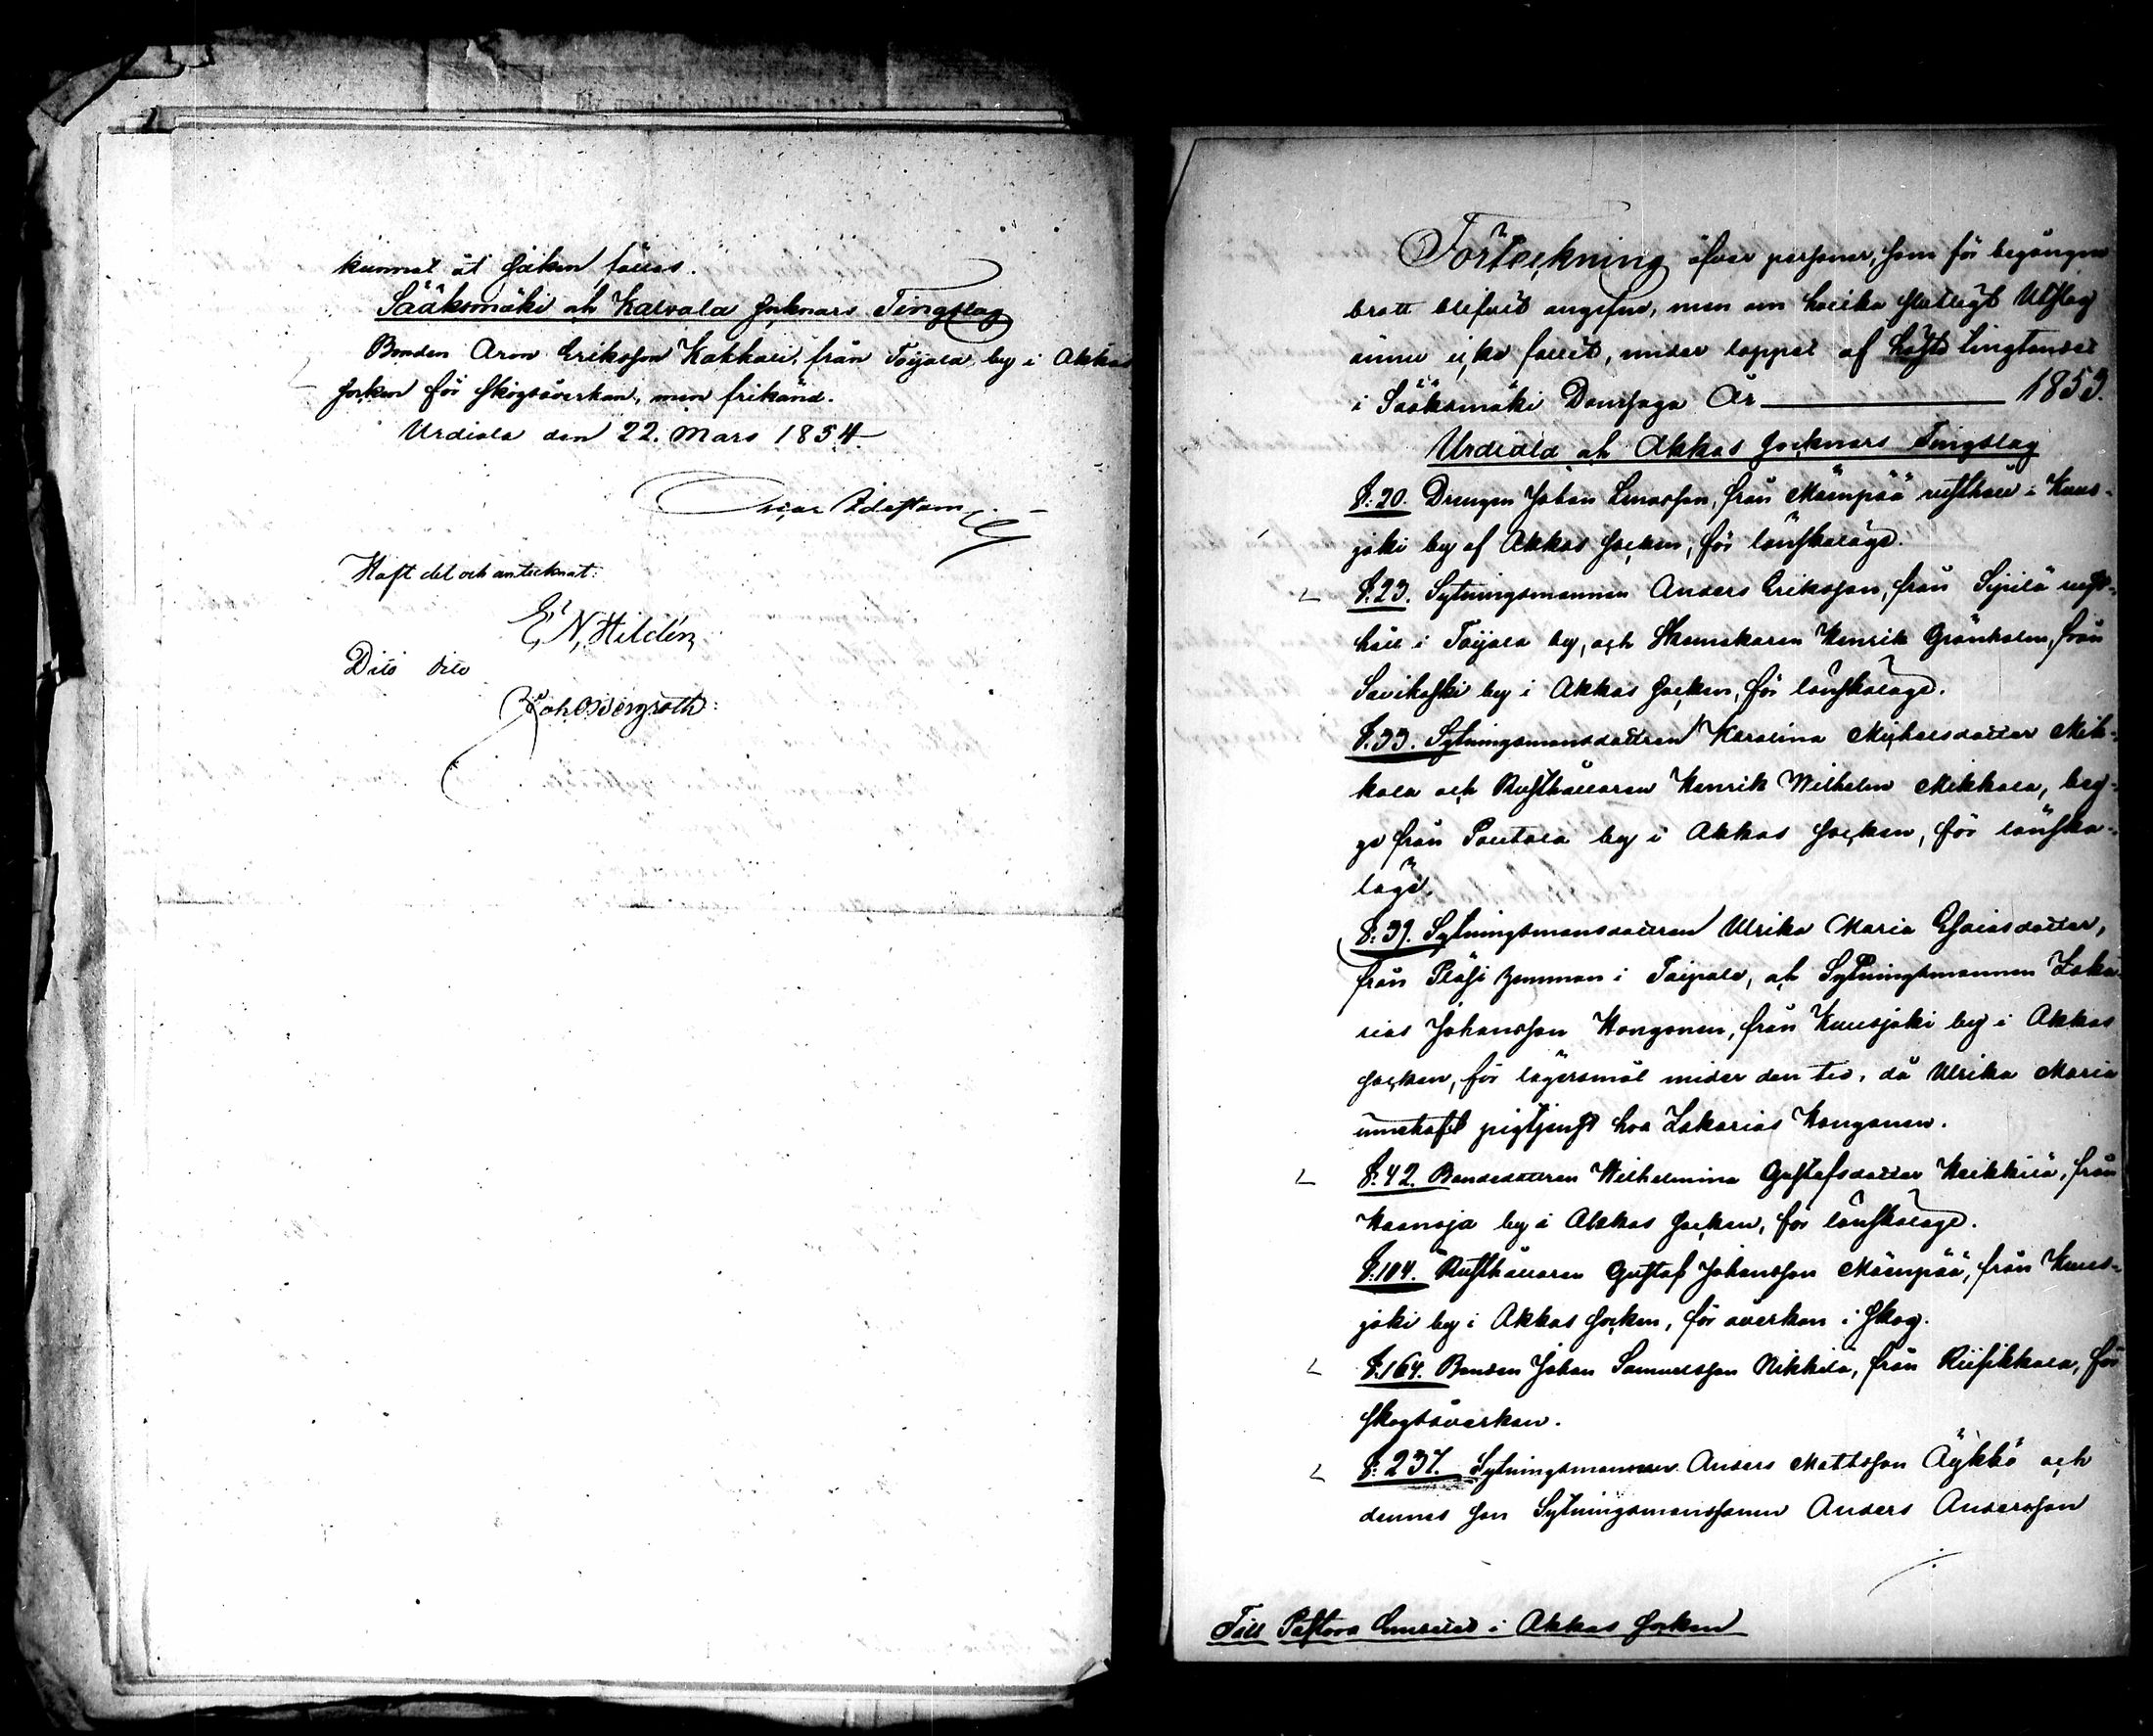 kunnat åt saken fällas.
Sääksmäki och Kalvola Socknars Tingslag
Bonden Aron Eriksson Kakkuri, från Toijala by i Akkas
Socken för skogsåverkan, men frikänd.
Urdiala den 22. Mars 1854.
Oscar Idestam
Haft del och antecknat:
E. N. Hildén
Dito dito
Joh O Bergroth:
Förteckning öfver personer, som för begångne
brott blifvit angifne, men om hvilka slutligt Utslag
ännu icke fallit, under loppet af höste tingtimat
i Sääksmäki Domsaga År 1853.
Urdiala och Akkas Socknars Tingslag
§. 20. Drengen Johan Enarsson, från Mäenpää rusthåll i Kuus-
joki by af Akkas Socken, för lönskaläge.
§. 23. Sytningsmannen Anders Eriksson, från Sipilä rust-
håll i Toijala by, och Skomakaren Henrik Grönholm, från
Savikoski by i Akkas Socken, för lönskaläge.
§. 33. Sytningsmansdottren Karolina Michelsdotter Mik-
kola och Rusthållaren Henrik Wilhelm Mikkola, beg-
ge från Pentola by i Akkas Socken, för lönska-
läge.
§. 39. Sytningsmansdottren Ulrika Maria Esaiasdotter,
från Pläsi hemman i Taipale, och Sytningsmannen Zaka-
rias Johansson Kongonen, från Kuusjoki by i Akkas
Socken, för lägersmål under den tid, då Ulrika Maria
innehaft pigtjenst hos Zakarias Kongonen.
§. 42. Bondedottren Wilhelmina Gustafsdotter Heikkilä, från
Konnoja by i Akkas Socken, för lönskaläge.
§. 104. Rusthållaren Gustaf Johansson Mäenpää, från Kuus-
joki by i Akkas Socken, för åverkan i skog.
§. 164. Bonden Johan Samuelsson Nikkilä, från Riisikkala, för
skogsåverkan.
§. 237. Sytningsmannen Anders Mattsson Äykkö och
dennes son Sytningsmanssonen Anders Andersson
Till Pastors Embetet i Akkas Socken